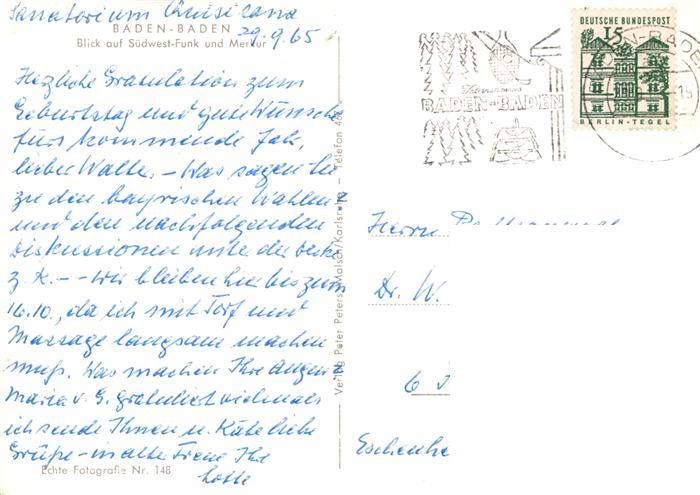 Sanatorium Quisisana
BADEN-BADEN
29.9.65
Blick auf Südwest-Funk und Merkur
Herzliche Gratulation zum
Geburtstag und gute Wünsche
fürs kommende Jahr,
lieber Walter. - Was sagen Sie
zu den bayrischen Wahlen?
und den nachfolgenden
Diskussionen unter der
z. K. - - Wir bleiben hier bis zum
16.10., da ich mit Torf und
Massage langsam machen
muß. Was machen Ihre Augen?
Maria v. G. gratuliert vielmals
ich sende Ihnen u. Käte liebe
Grüße - in alter Treue Ihre
Lotte
Echte Fotografie Nr. 148
Verlag Peter Peters, Malsch/Karlsruhe - Telefon
DEUTSCHE BUNDESPOST
15
BERLIN-TEGEL
BADEN-BADEN
Herrn
Dr. W.
6